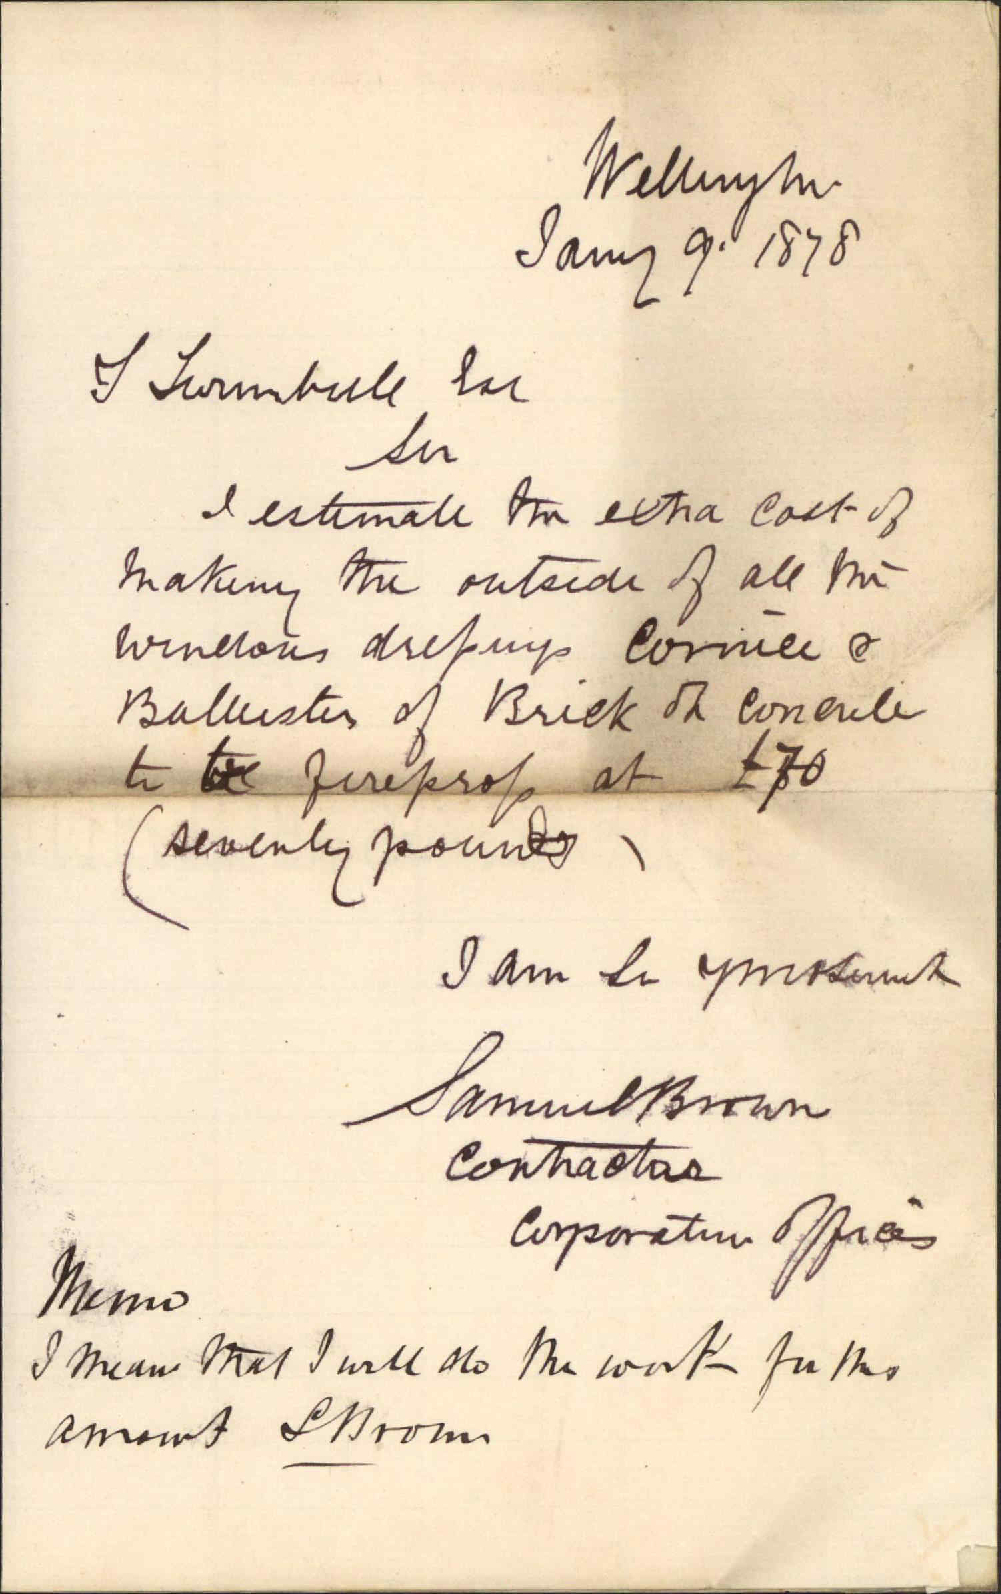 Wellington
Jany 9. 1878
T Turnbull Esq
Sir
I estimate the extra cost of
making the outside of all the
windows dressings Cornice &
Balluster of Brick or concrete
to be fireproof at £70
(seventy pounds)
I am Sir
Samuel Brown
Contractor
Corporation Offices
Memo
I mean that I will do the work for this
amount S Brown